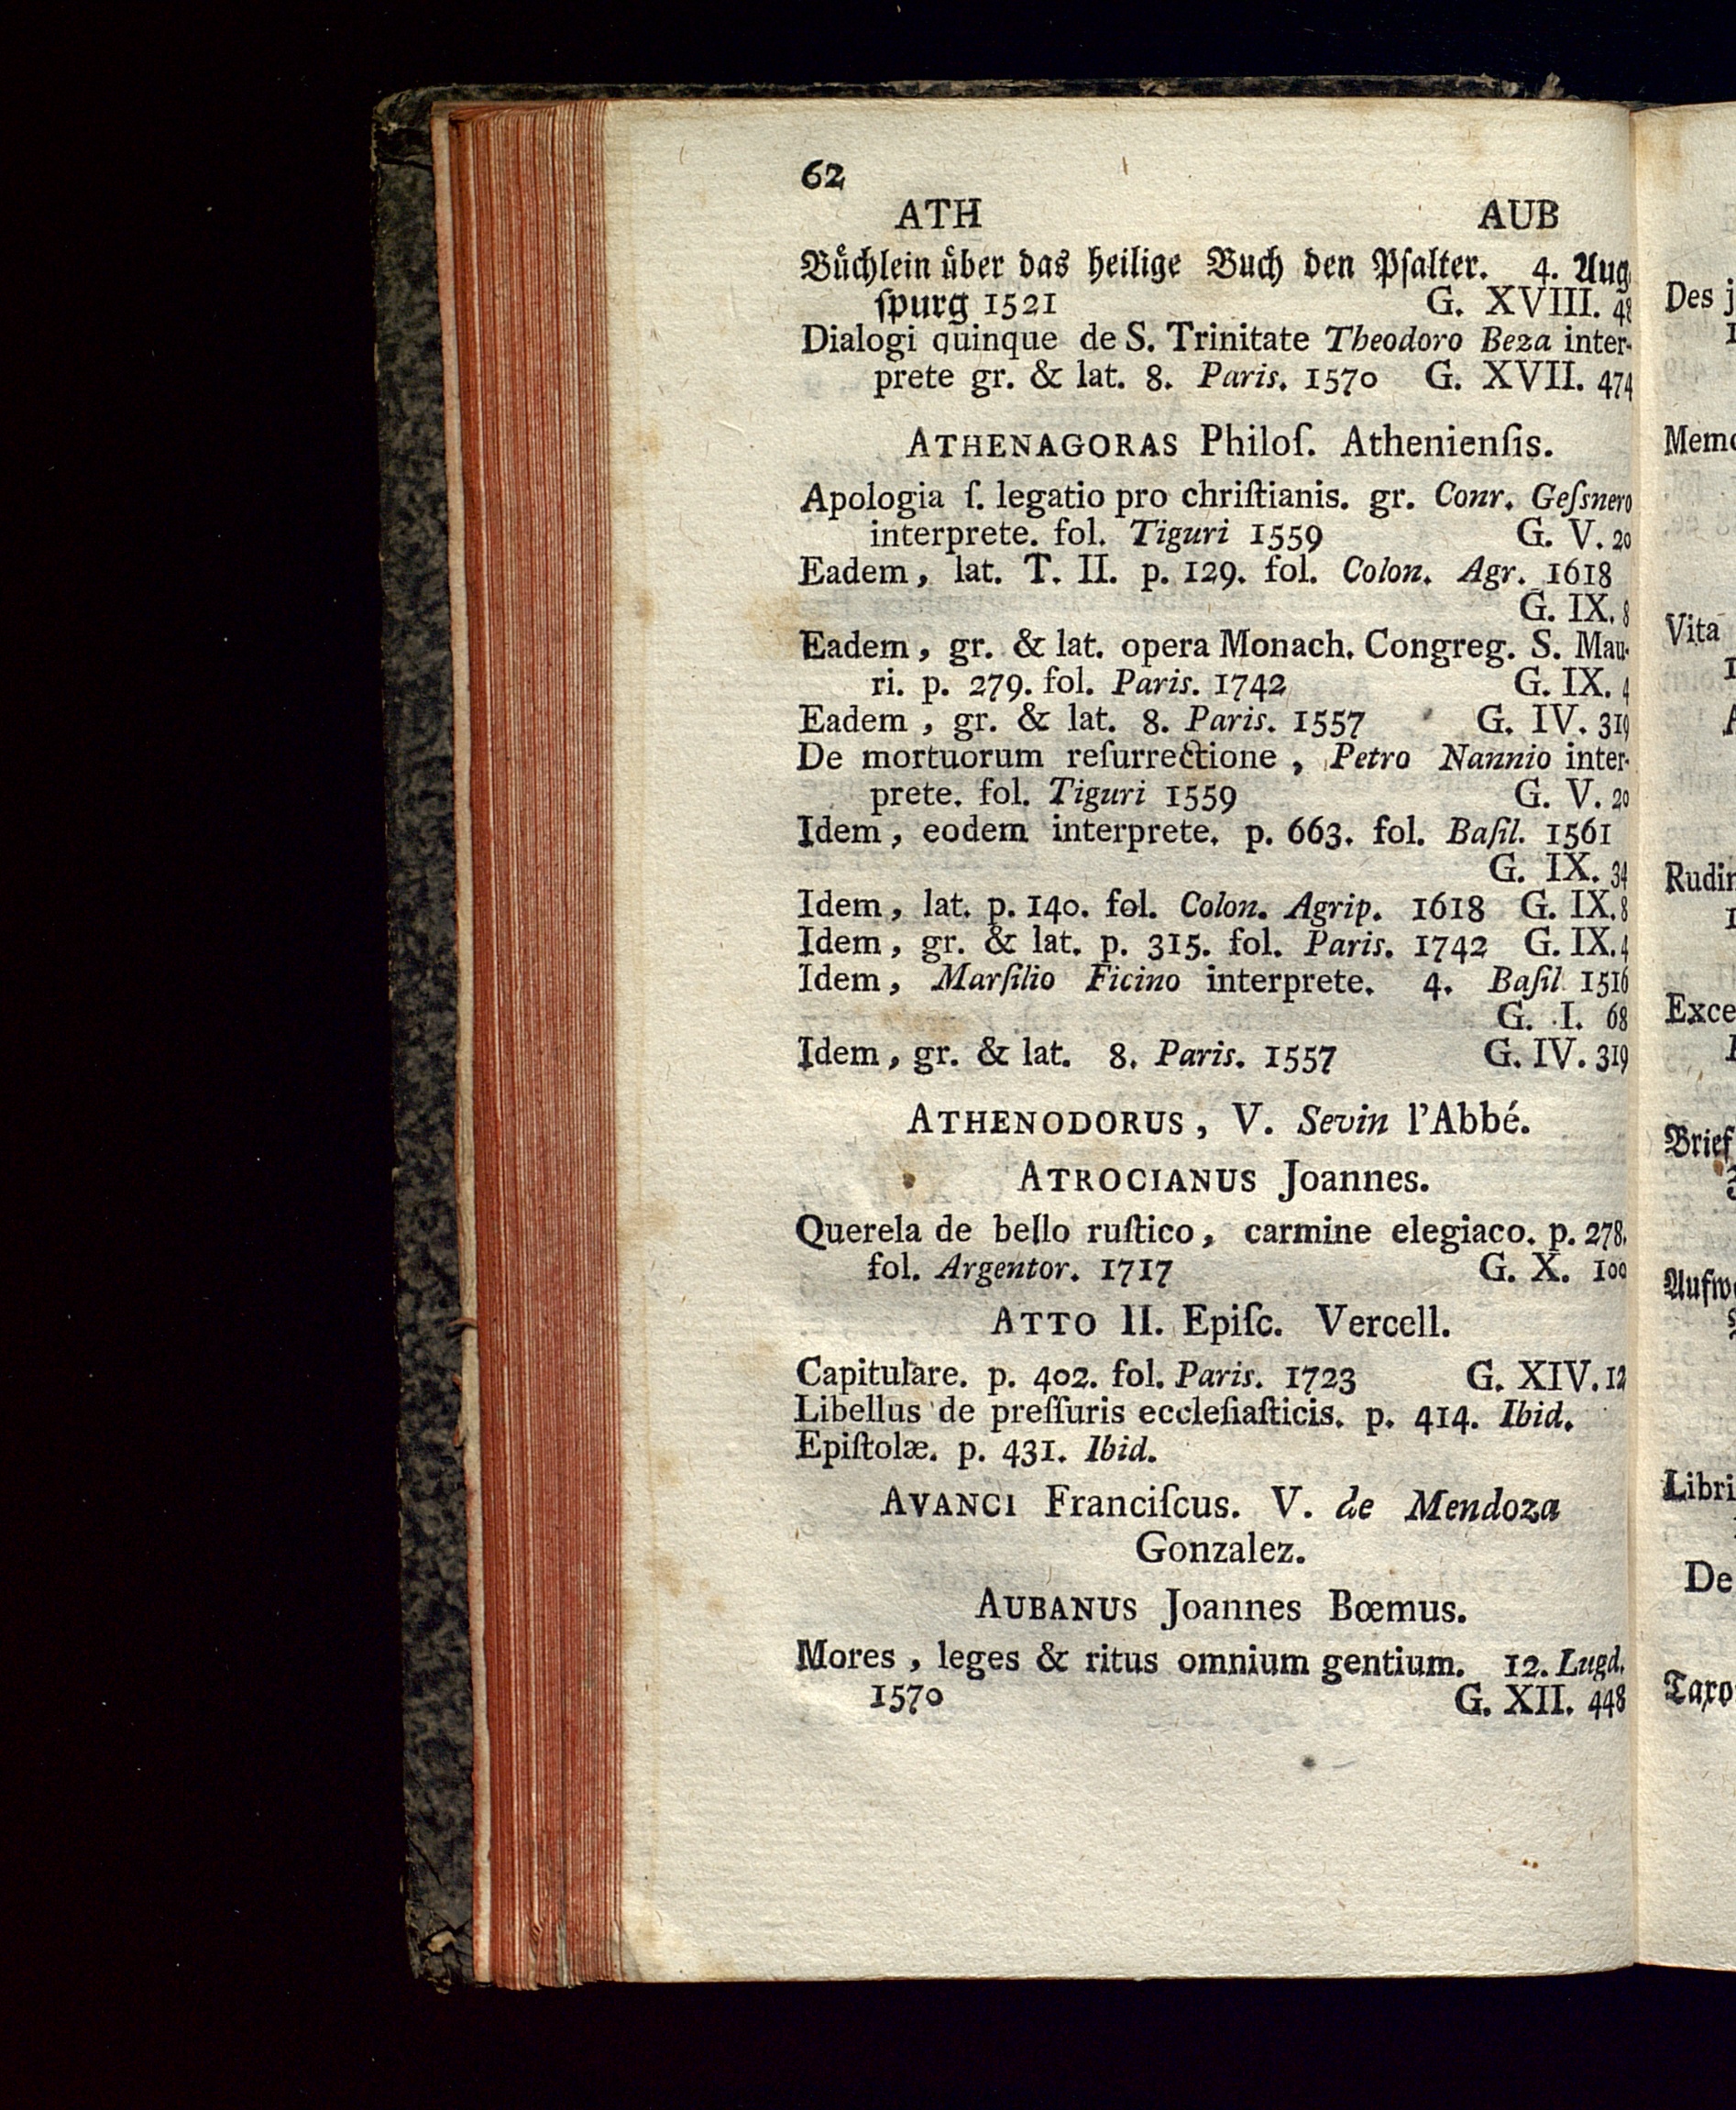 62
ATH AUB
Büchlein über das heilige Buch den Psalter. 4. Aug
ſpurg 1521 G. XVIII. 48
Dialogi quinque de S. Trinitate Theodoro Beza inter-
prete gr. & lat. 8. Paris. 1570 G. XVII. 474
ATHENAGORAS Philoſ. Athenienſis.
Apologia ſ. legatio pro chriſtianis. gr. Conr. Geſsnero
interprete. fol. Tiguri 1559 G. V. 20
Eadem, lat. T. II. p. 129. fol. Colon. Agr. 1618
G. IX. 8
Eadem, gr. & lat. opera Monach. Congreg. S. Mau-
ri. p. 279. fol. Paris. 1742 G. IX. 4
Eadem, gr. & lat. 8. Paris. 1557 G. IV. 319
De mortuorum reſurrectione, Petro Nannio inter-
prete. fol. Tiguri 1559 G. V. 20
Idem, eodem interprete. p. 663. fol. Baſil. 1561
G. IX. 34
Idem, lat. p. 140. fol. Colon. Agrip. 1618 G. IX. 8
Idem, gr. & lat. p. 315. fol. Paris. 1742 G. IX. 4
Idem, Marſilio Ficino interprete. 4. Baſil 1516
G. I. 68
Idem, gr. & lat. 8. Paris. 1557 G. IV. 319
ATHENODORUS, V. Sevin l'Abbé.
ATROCIANUS Joannes.
Querela de bello ruſtico, carmine elegiaco. p. 278.
fol. Argentor. 1717 G. X. 100
ATTO II. Epiſc. Vercell.
Capitulare. p. 402. fol. Paris. 1723 G. XIV. 12
Libellus de preſſuris eccleſiaſticis. p. 414. Ibid.
Epiſtolæ. p. 431. Ibid.
AVANCI Franciſcus. V. de Mendoza
Gonzalez.
AUBANUS Joannes Bœmus.
Mores, leges & ritus omnium gentium. 12. Lugd.
1570 G. XII. 448
Des
Vita
De